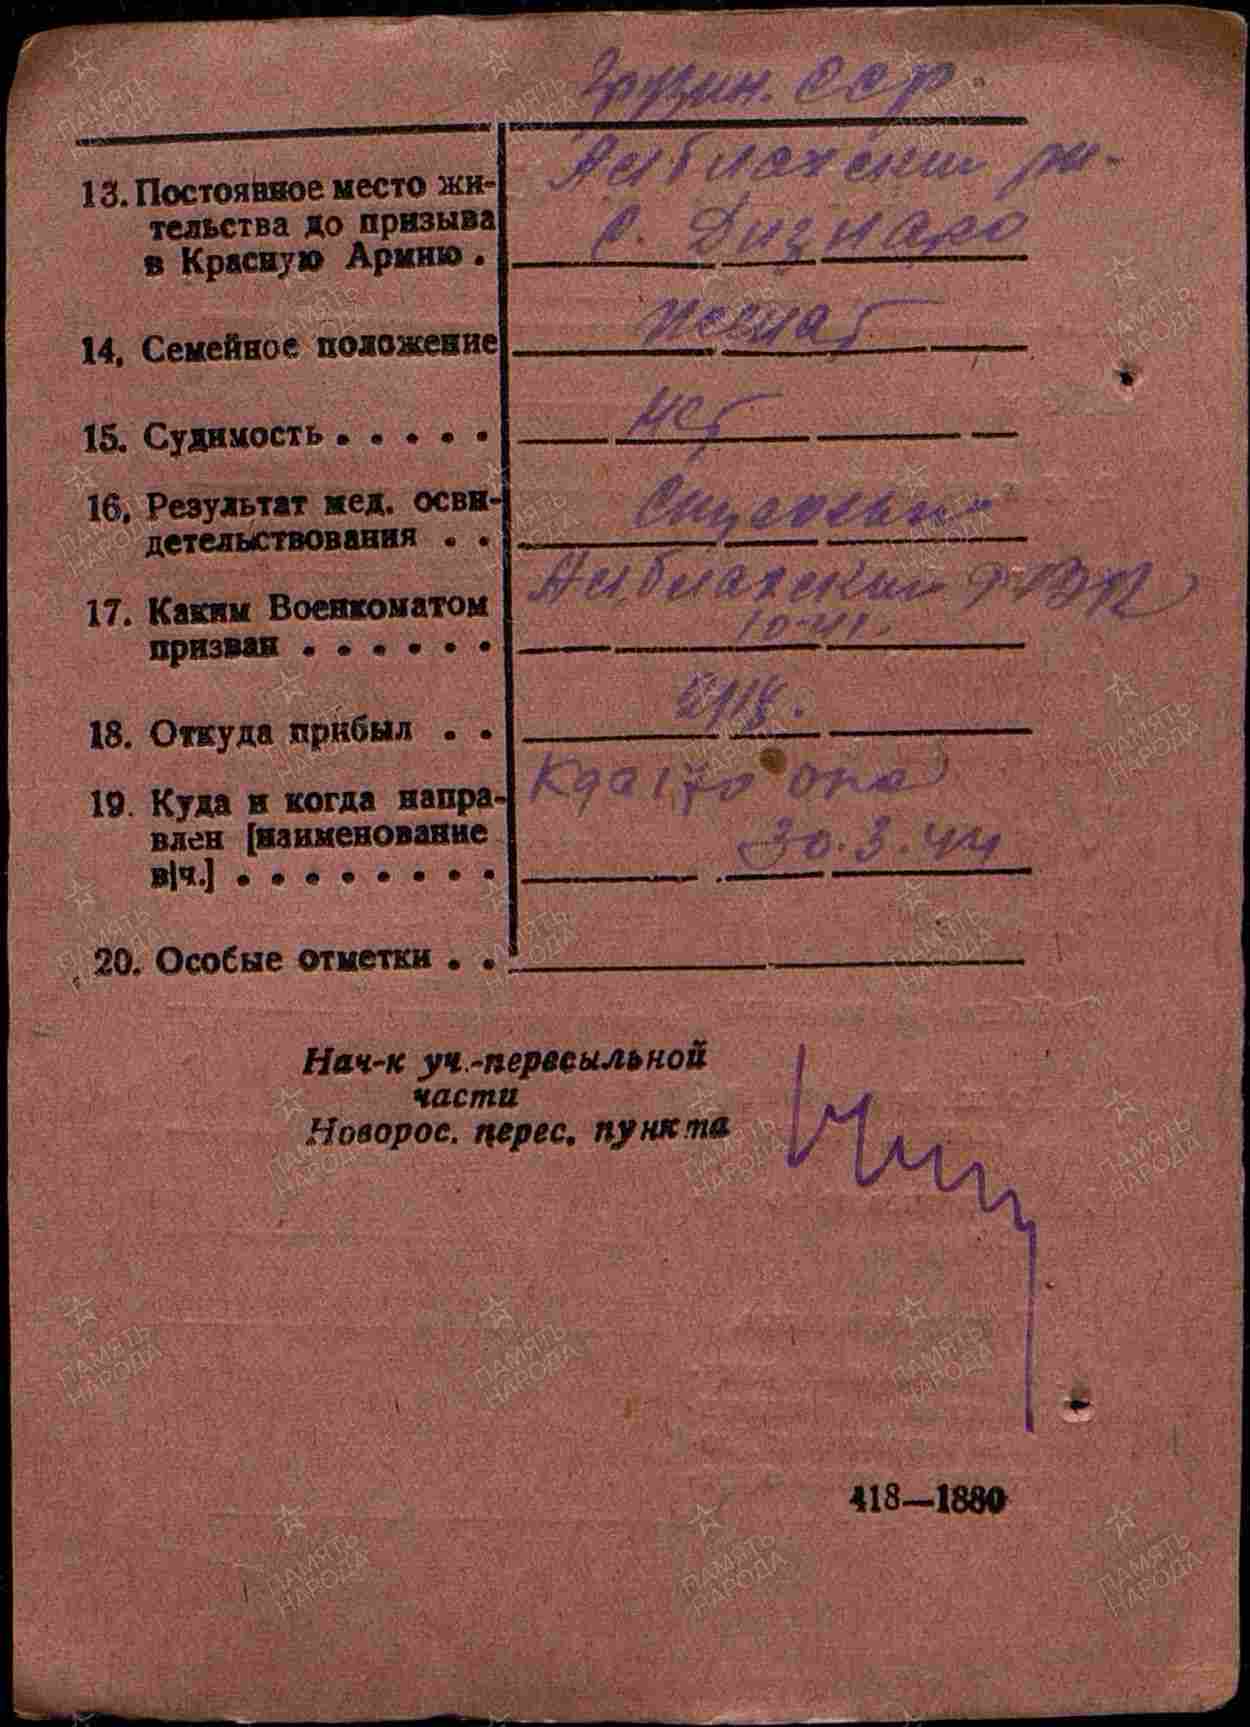 Грузин. ССР
13. Постоянное место жи-
тельства до призыва
в Красную Армию .
Ахблахский рн-
с. Дизнаро
14, Семейное положение
женат
15. Судимость . . . . .
нет
16, Результат мед. осви-
детельствования . .
17. Каким Военкоматом
призван . . . . . .
Ахблахский РВК
10-41.
18. Откуда прибыл . .
19. Куда и когда направ-
влен [наименование
в|ч.] . . . . . . . .
170
30.3.44
20. Особые отметки . .
Нач-к уч.-пересыльной
части
Новорос. перес. пункта
418—1880
ПАМЯТЬ
НАРОДА